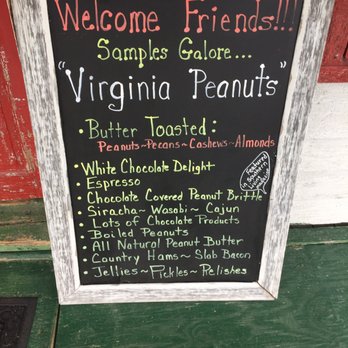 Welcome Friends!!!
Samples Galore...
"Virginia Peanuts"
• Butter Toasted:
Peanuts~Pecans~Cashews~Almonds
• White Chocolate Delight
• Espresso
• Chocolate Covered Peanut Brittle
• Siracha~Wasabi~Cajun
• Lots of Chocolate Products
• Boiled Peanuts
• All Natural Peanut Butter
• Country Hams~Slab Bacon
• Jellies~Pickles~Relishes
Featured
in Southern